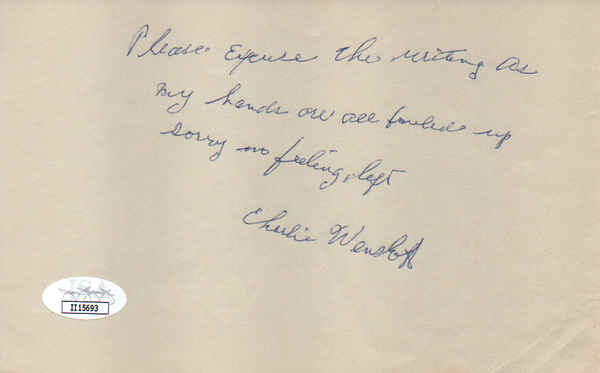 Please Excuse the writing as
my hands are all fouled up
sorry no feeling left
Charlie
JSA
II15693